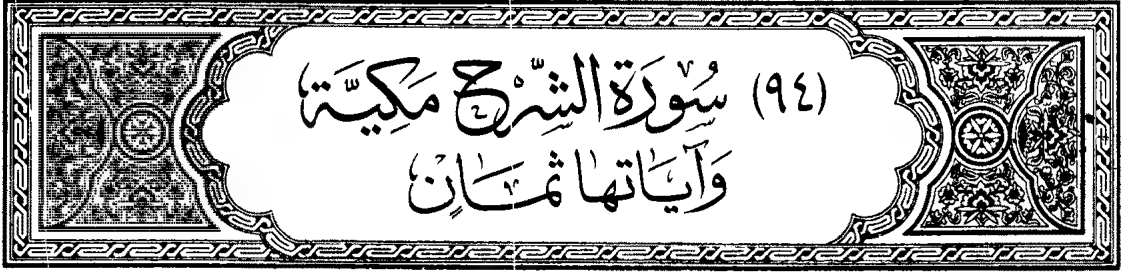 (٩٤) سُورَة الشَّرْح مَكِيَّة
وَآيَاتهَا ثمَانٍ